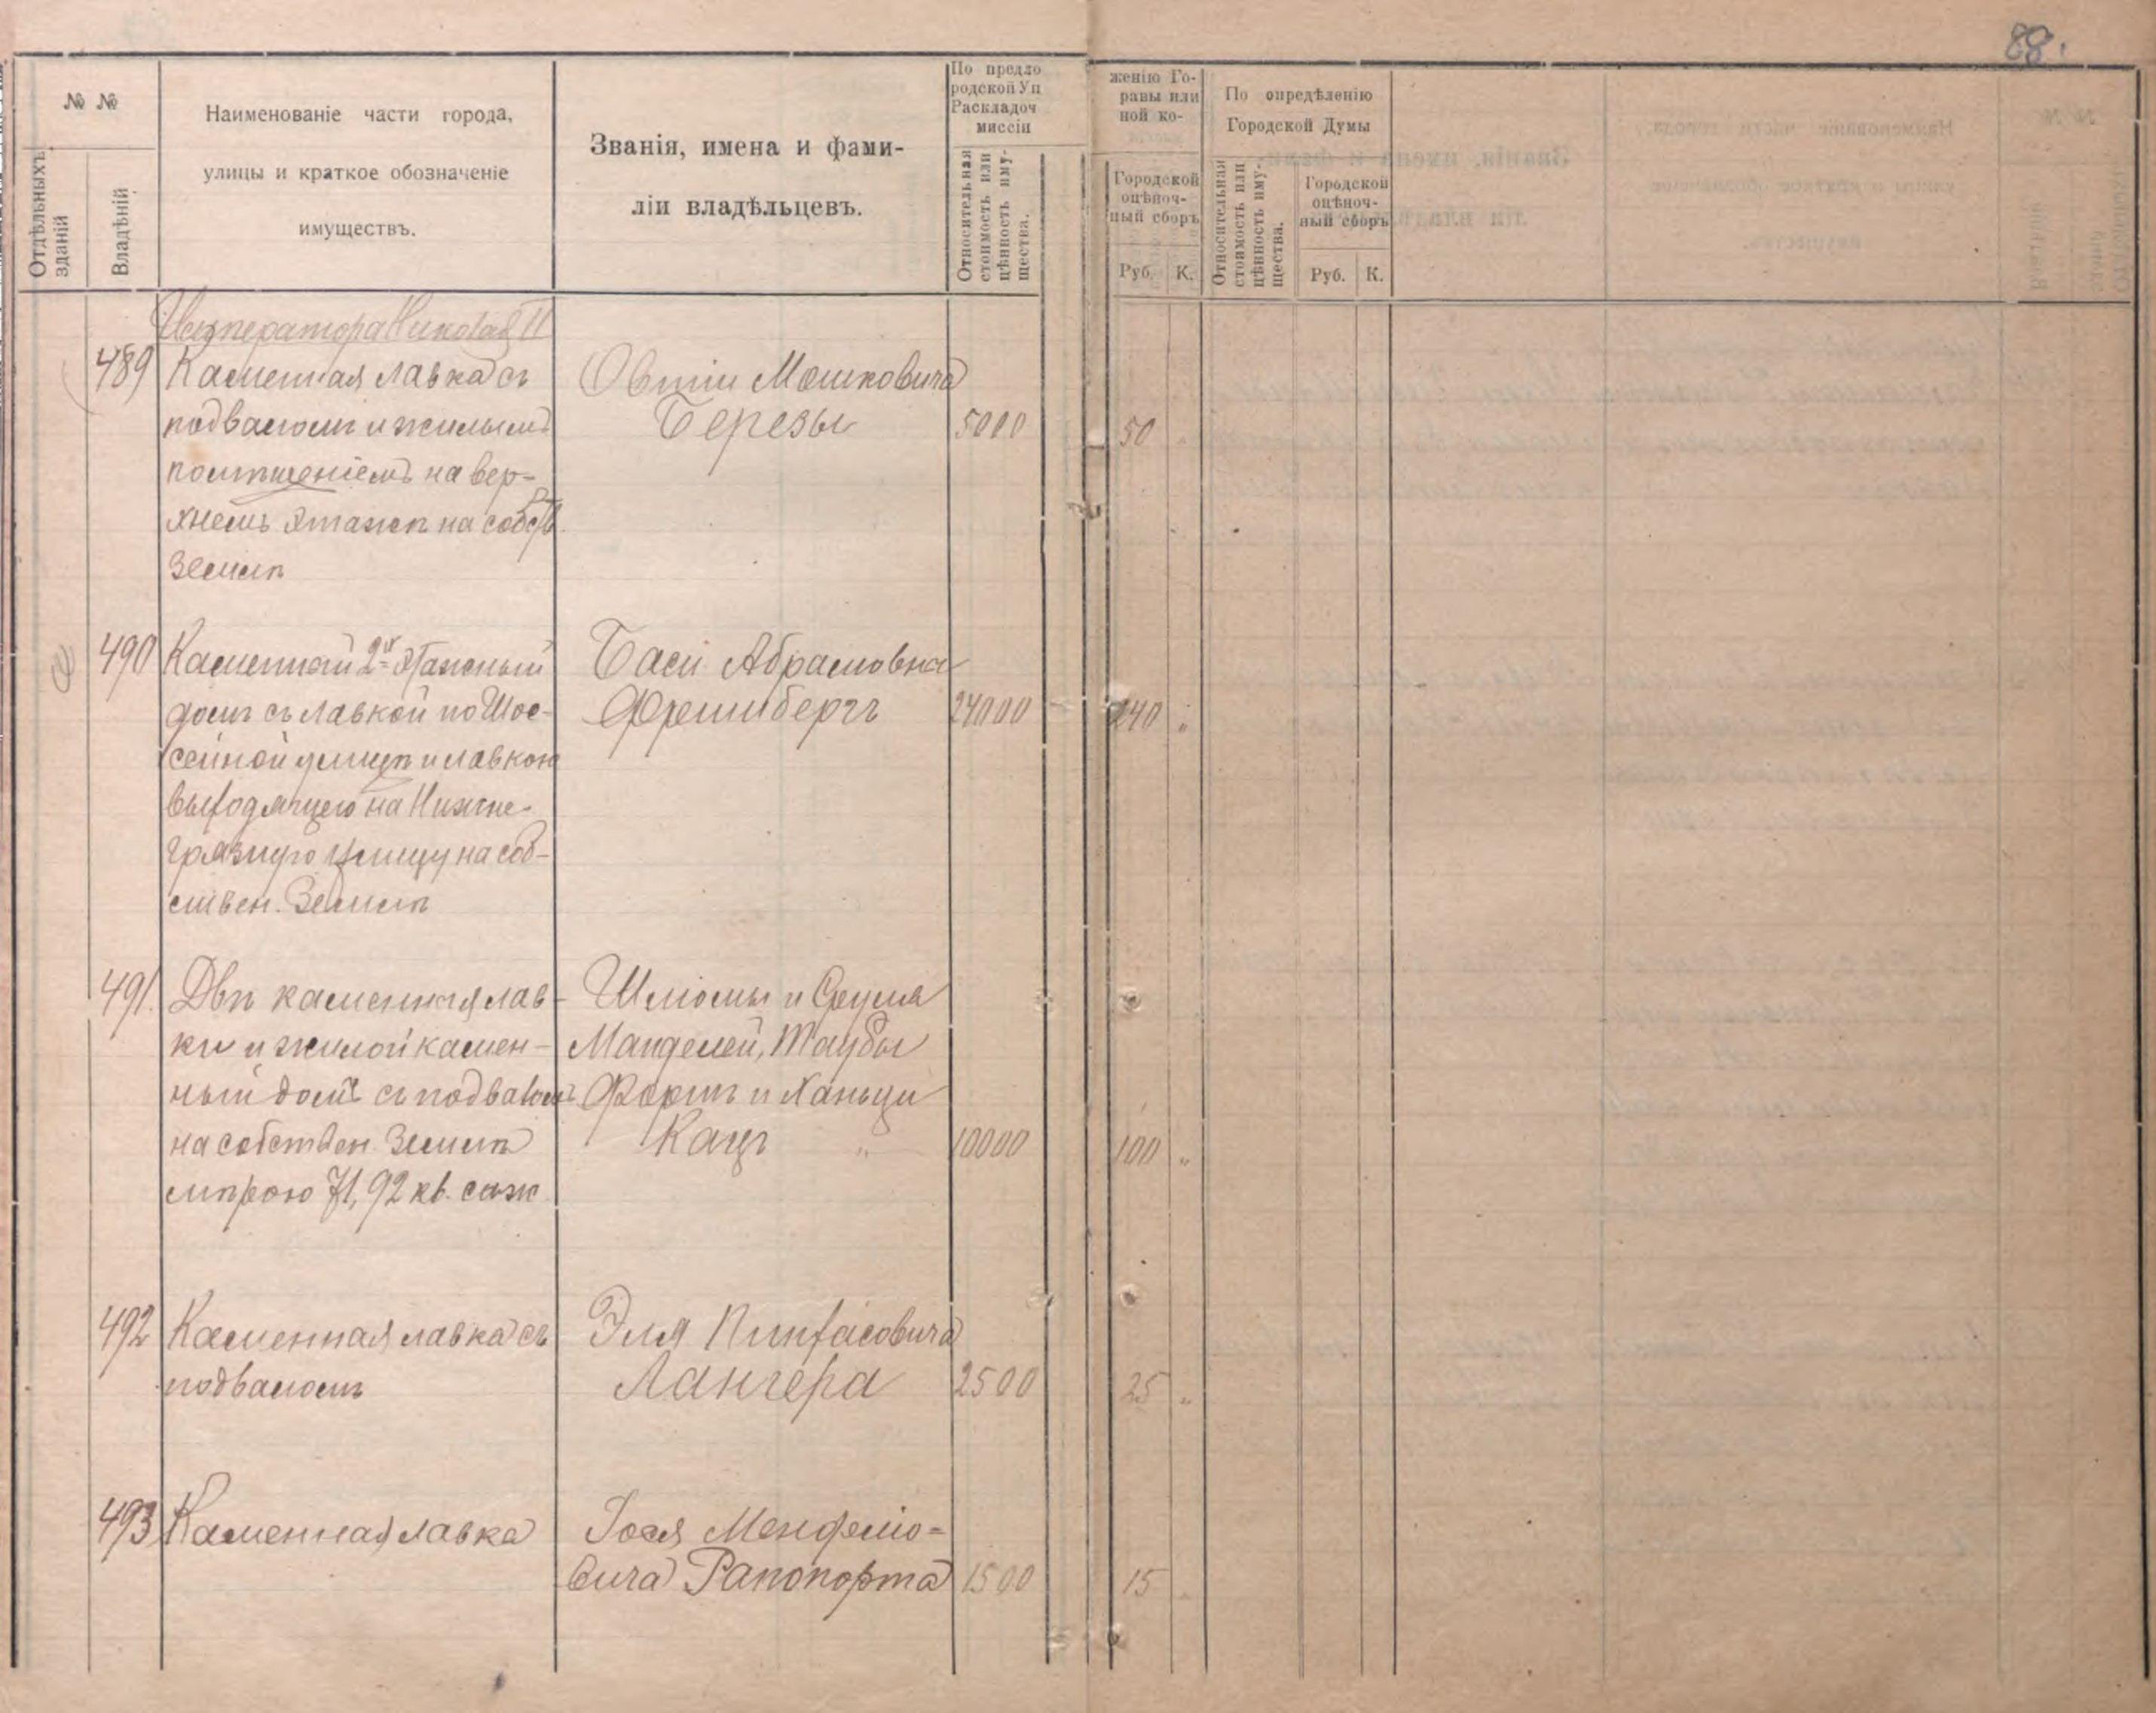 88.
№ №
Отдѣльныхъ зданій
Владѣній
Наименованіе части города,
улицы и краткое обозначеніе
имуществъ.
Званія, имена и фами-
ліи владѣльцевъ.
По предло
родской Уп
Раскладоч
миссіи
Относительная
стоимость или
цѣнность иму-
щества.
женію Го-
равы или
ной ко-
Городской
оцѣноч-
ный сборъ
Руб. К.
По опредѣленію
Городской Думы
Относительная
стоимость или
цѣнность иму-
щества.
Городской
оцѣноч-
ный сборъ
Руб. К.
Императора Николая II
489 Каменная лавка съ
подваломъ и жилымъ
помѣщеніемъ на вер-
хнемъ этажѣ на собств.
землѣ
Овши Мошковича
Березы 5000 50 "
490 Каменный 2х этажный
домъ съ лавкой по Шос-
сейной улицѣ и лавкою
выходящею на Нижне-
грязную улицу на соб-
ствен. землѣ
Баси Абрамовна
24000 240 "
491. Двѣ каменныя лав-
ки и жилой камен-
ный домъ съ подваломъ
на собствен. землѣ
мѣрою 71,92 кв. саж
Шліомы и Сруля
Манделей, Таубы
и Ханьци
Кацъ " 10000 100 "
492 Каменная лавка съ
подваломъ
Эля Пинхасовича
Лангера 2500 25 "
493 Каменная лавка
Іося Менделіо-
вича Рапопорта 1500 15 "